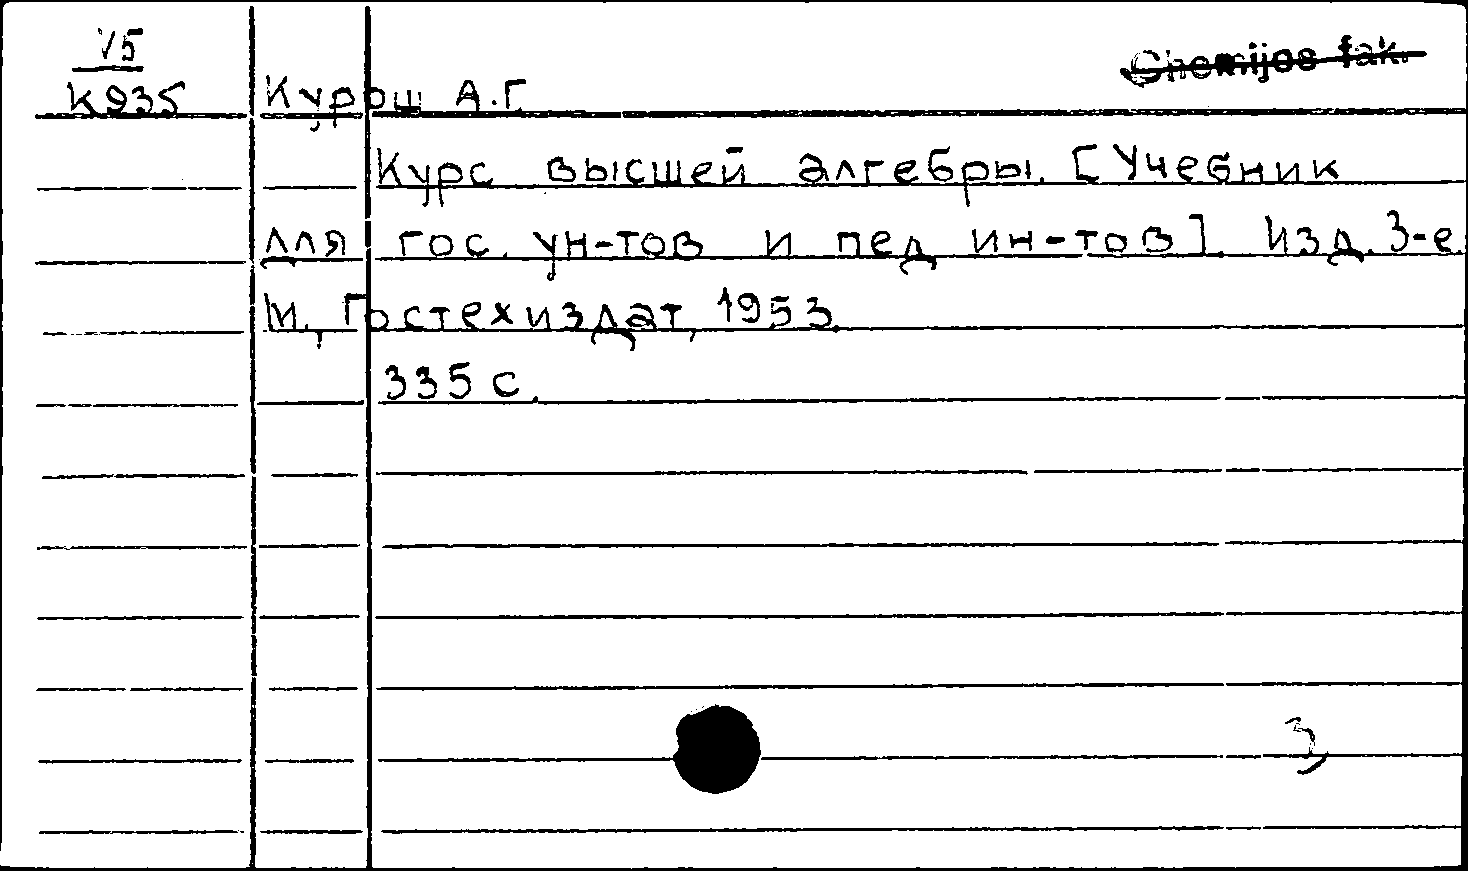 V5
Chemijos fak.
К935 Курош А.Г.
Курс высшей алгебры. [Учебник
для гос. ун-тов и пед ин-тов]. Изд. 3-е
М., Гостехиздат, 1953.
335 с.
3